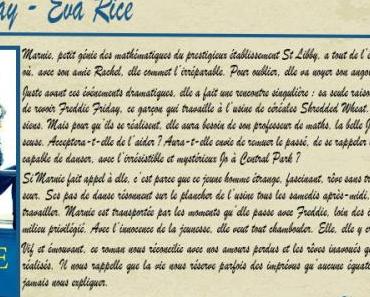 ay - Eva Rice
Marnie, petit génie des mathématiques du prestigieux établissement St Libby, a tout de l'é
où, avec son amie Rachel, elle commet l'irréparable. Pour oublier, elle va noyer son ango
Juste avant ces événements dramatiques, elle a fait une rencontre singulière : sa seule raison
de revoir Freddie Friday, ce garçon qui travaille à l'usine de céréales Shredded Wheat.
siens. Mais pour qu'ils se réalisent, elle aura besoin de son professeur de maths, la belle J
seuse. Acceptera-t-elle de l'aider ? Aura-t-elle envie de remuer le passé, de se rappeler
capable de danser, avec l'irrésistible et mystérieux Jo à Central Park ?
Si Marnie fait appel à elle, c'est parce que ce jeune homme étrange, fascinant, rêve sans tr
seur. Ses pas de danse résonnent sur le plancher de l'usine tous les samedis après-midi,
travailler. Marnie est transportée par les moments qu'elle passe avec Freddie, loin des i
milieu privilégié. Avec l'innocence de la jeunesse, elle veut tout chambouler. Elle, elle y cr
Vif et émouvant, ce roman nous réconcilie avec nos amours perdus et les rêves inavoués q
réalisés. Il nous rappelle que la vie nous réserve parfois des imprévus qu'aucune équat
jamais nous expliquer.
E